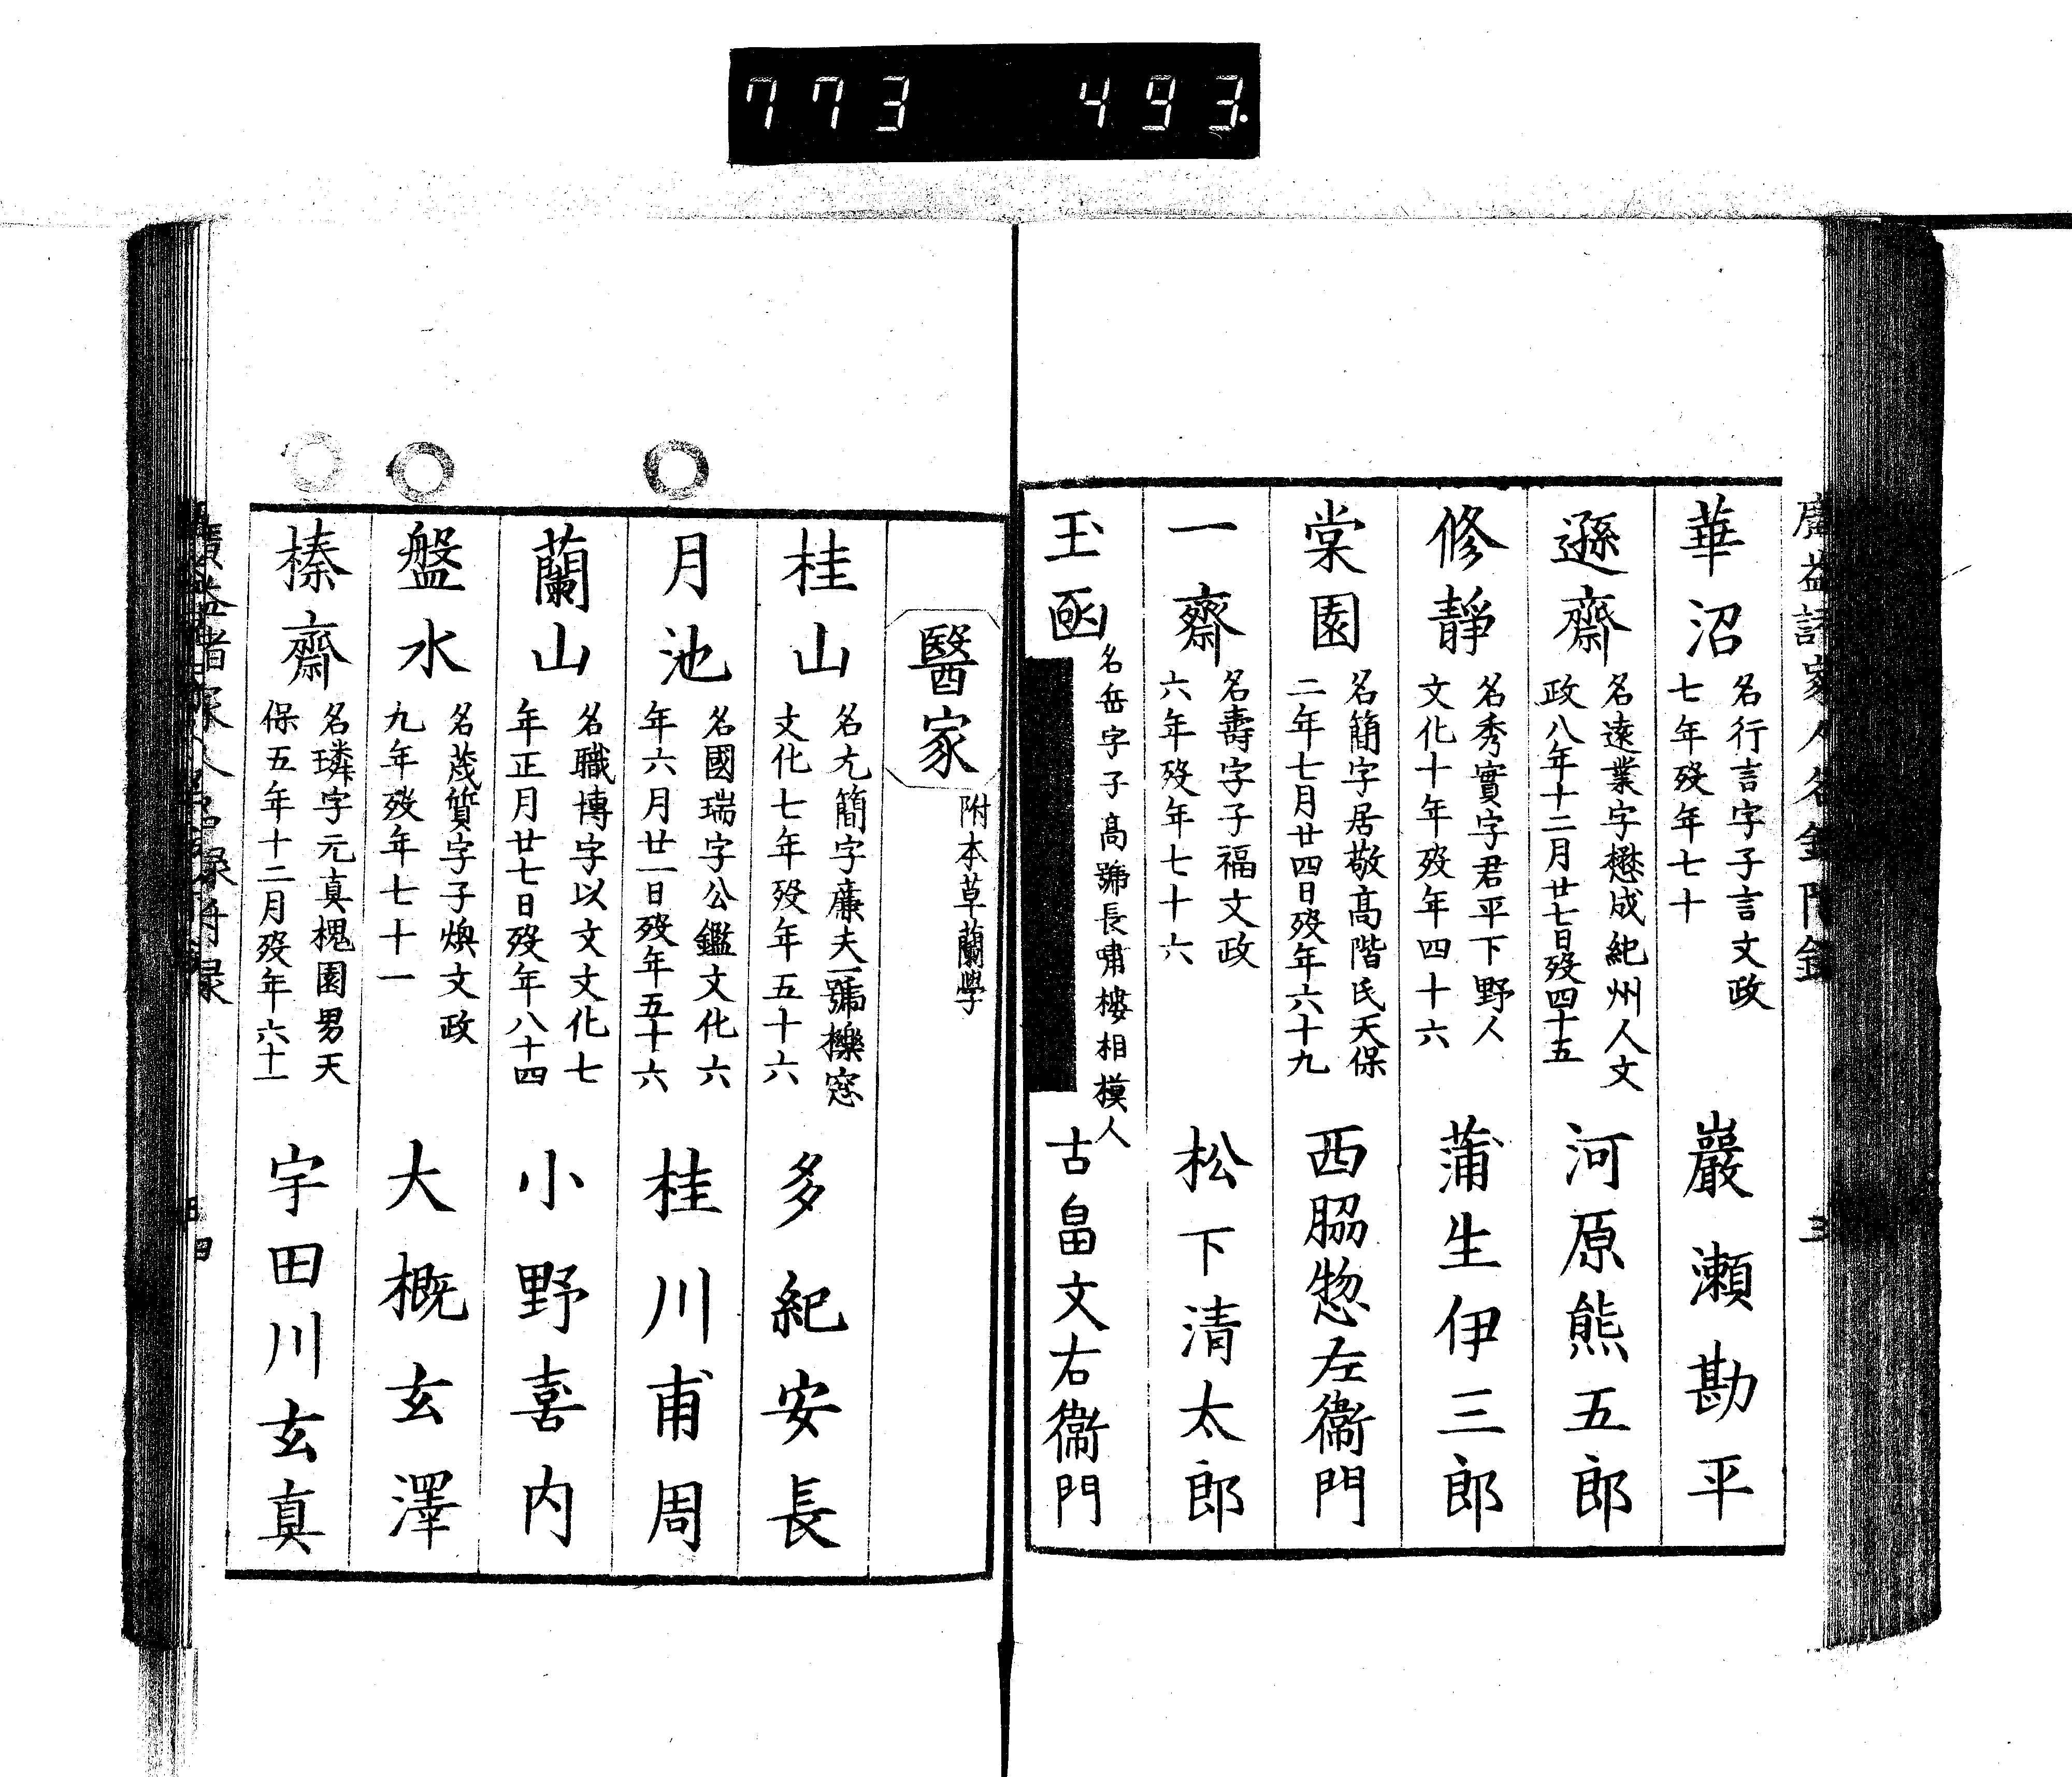 773 493.
華沼 名行言字子言文政
七年歿年七十 巖瀬勘平
遜齋 名遠業字懋成紀州人文
政八年十二月廿七日歿四十五 河原熊五郎
修靜 名秀實字君平下野人
文化十年歿年四十六 蒲生伊三郎
棠園 名簡字居敬髙階氏天保
二年七月廿四日歿年六十九 西脇惣左衞門
一齋 名壽字子福文政
六年歿年七十六 松下清太郎
玉函 名岳字子髙號長嘯樓相摸人
古畠文右衞門
醫家 附本草蘭學
桂山 名元簡字廉夫一號櫟窓
文化七年歿年五十六 多紀安長
月池 名國瑞字公鑑文化六
年六月廿一日歿年五十六 桂川甫周
蘭山 名職博字以文文化七
年正月廿七日歿年八十四 小野喜内
盤水 名茂質字子煥文政
九年歿年七十一 大概玄澤
榛齋 名璘字元真槐園男天
保五年十二月歿年六十一 宇田川玄真